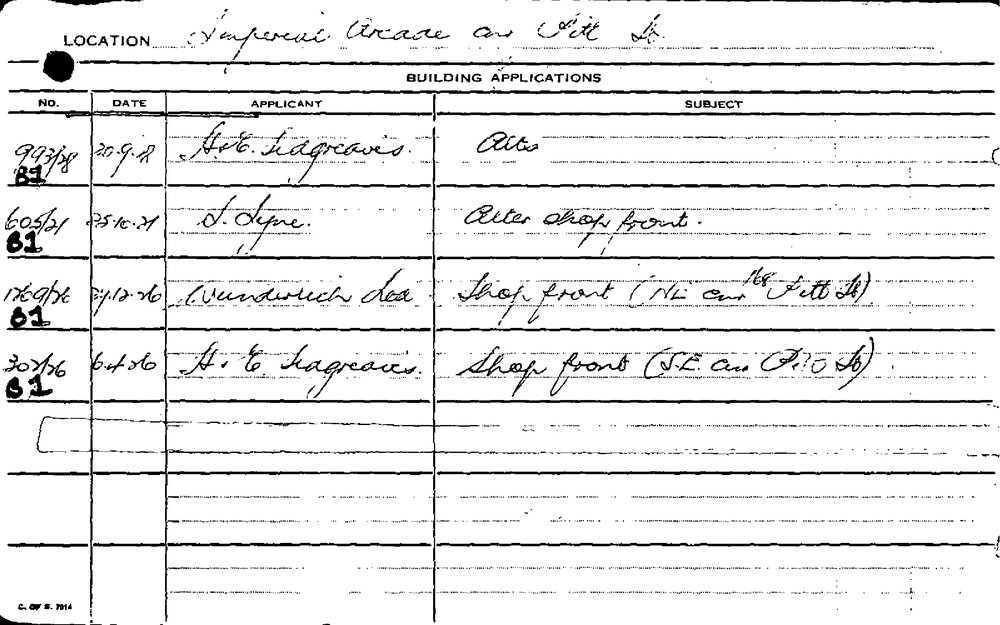 LOCATION Imperial Arcade cnr Pitt St.
BUILDING APPLICATIONS
NO. DATE APPLICANT SUBJECT
993/28 20.9.28 H.E. Seagreaves. Alts
B1
605/21 25.10.21 S. Lyne. Alter shop front.
B1
1269/26 12.26 Wunderlich Ltd Shop front (NE cnr 168 Pitt St)
B1
302/26 6.4.26 H. E. Seagreaves. Shop front (S.E. cnr Pitt St)
B1
C. OF S. 7914